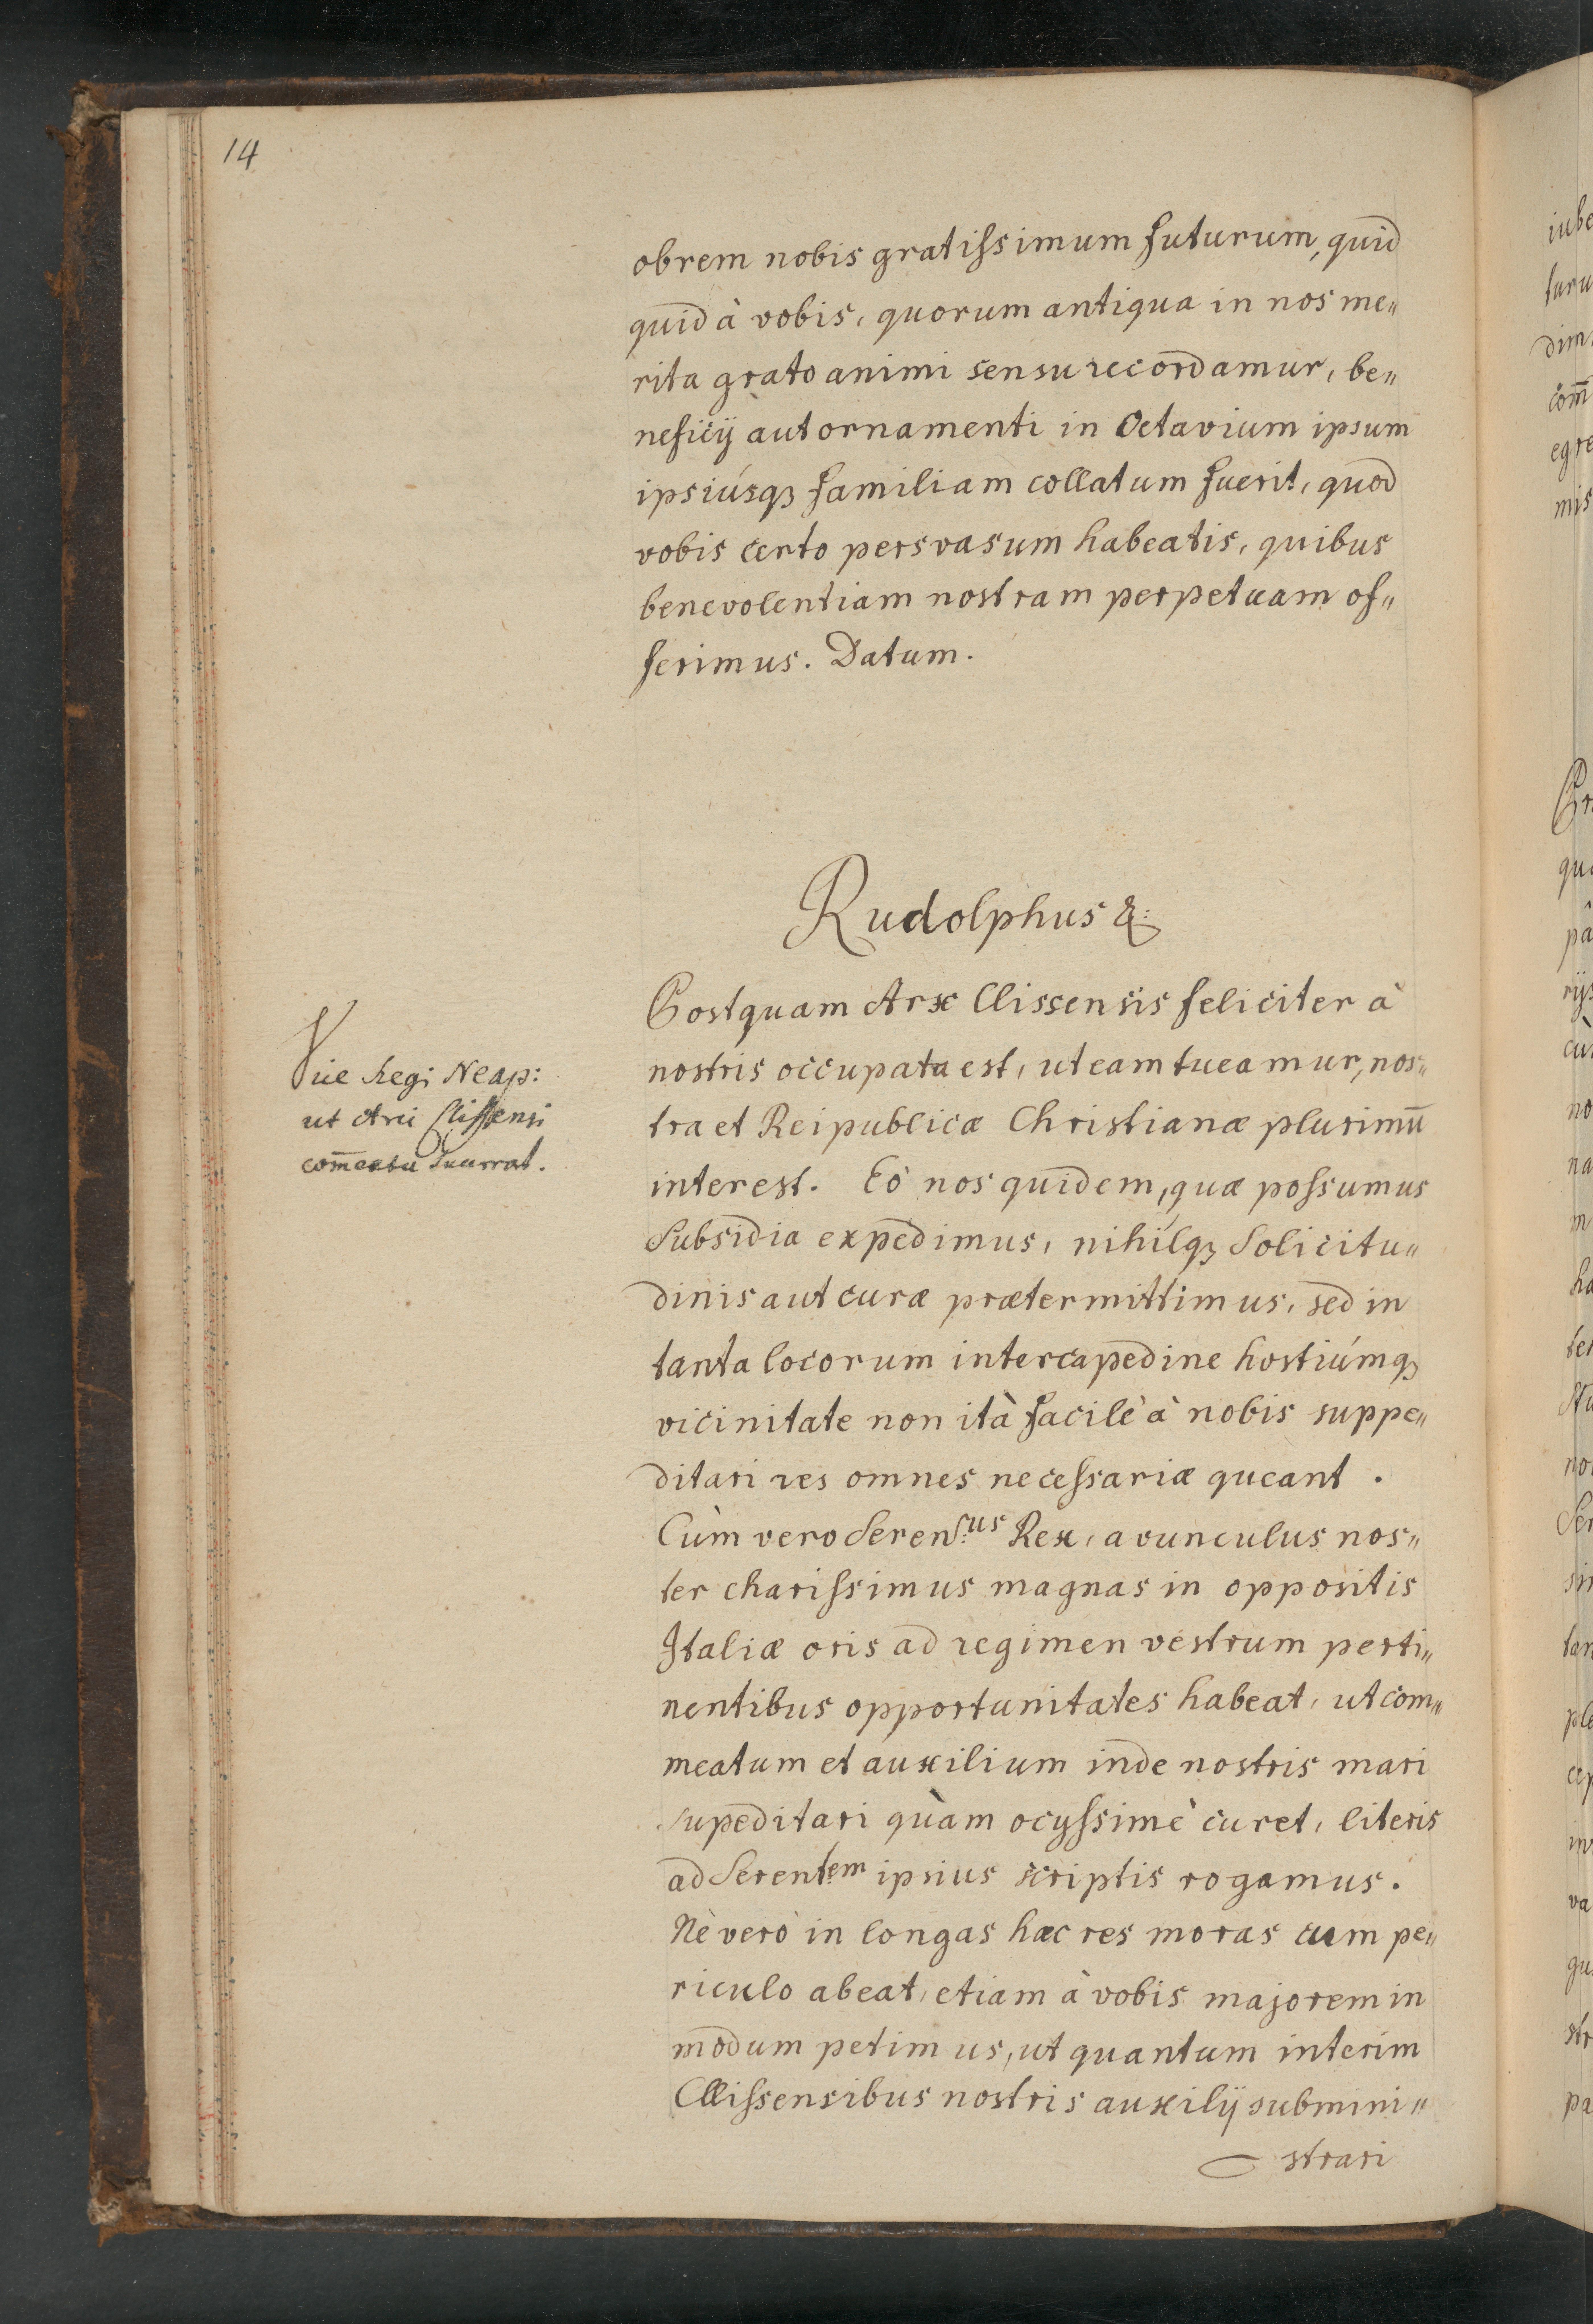 14
obrem nobis gratissimum futurum, quid
quid à vobis, quorum antiqua in nos me„
rita grato animi sensu recordamur, be„
neficij aut ornamenti in Octavium ipsum
ipsiúsq; familiam collatum fuerit, quod
vobis certo persvasum habeatis, quibus
benevolentiam nostram perpetuam of„
ferimus. Datum.
Rudolphus &:
Postquam Arx Clissensis feliciter à
nostris occupata est, ut eam tueamur, nos„
tra et Reipublicæ Christianæ plurimū
interest. Eò nos quidem, quæ possumus
Subsidia expedimus, nihílq; Solicitu„
dinis aut curæ prætermittimus, sed in
tanta locorum intercapedine hostiúmq;
vicinitate non ità facilè à nobis suppe„
ditari res omnes necessariæ queant.
Cùm vero Seren.us Rex, avunculus nos„
ter charissimus magnas in oppositis
Italiæ oris ad regimen vestrum perti„
nentibus opportunitates habeat, ut com„
meatum et auxilium inde nostris mari
supeditari quàm ocyssimè curet, literis
ad Serentem ipsius scriptis rogamus.
Nè verò in longas hæc res moras cum pe„
riculo abeat, etiam à vobis majorem in
modum petimus, ut quantum interim
Clissensibus nostris auxilij submini„
strari
Vice Regi Neap:
ut Arci Clissensi
com̄eatu